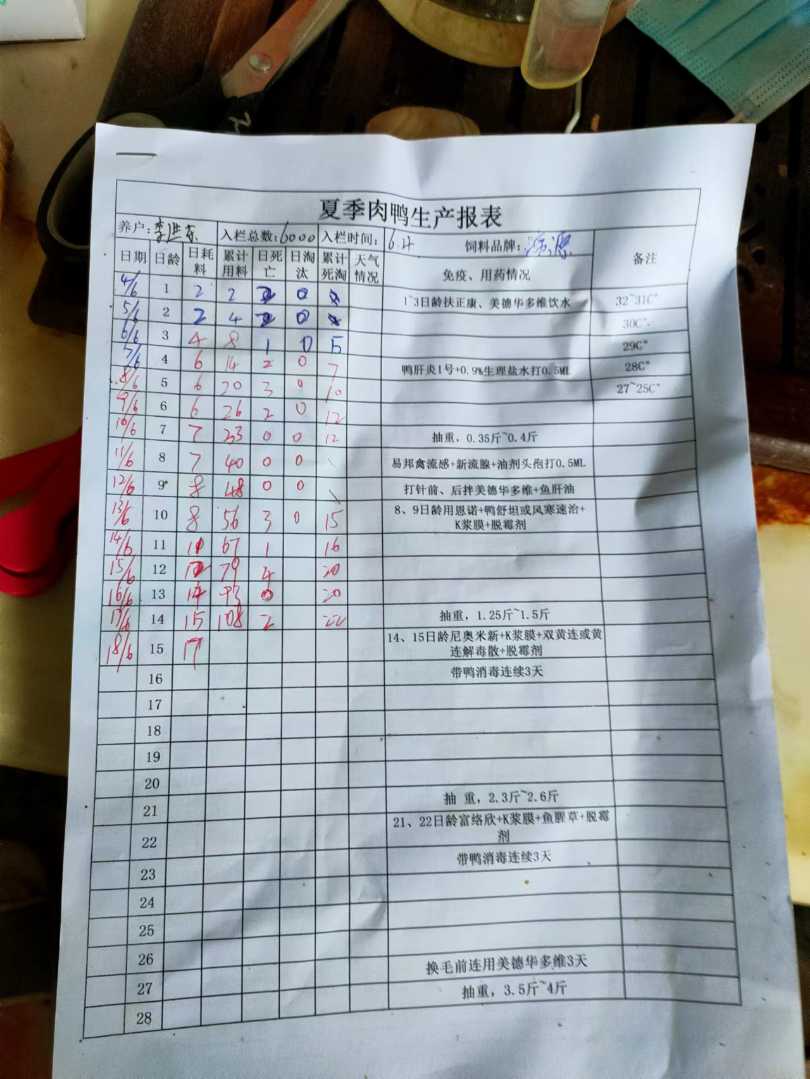 夏季肉鸭生产报表
养户: 入栏总数:6000 入栏时间: 6.4 饲料品牌: 备注
日期 日龄 日耗料 累计用料 日死亡 日淘汰 累计死淘 天气情况 免疫、用药情况
4/6 1 2 2 0 1~3日龄扶正康、美德华多维饮水 32~31C°
5/6 2 2 4 0 30C°
6/6 3 4 8 1 0 5 29C°
7/6 4 6 14 2 0 7 鸭肝炎1号+0.9%生理盐水打0.5ML 28C°
8/6 5 6 20 3 0 10 27~25C°
9/6 6 6 26 2 0 12
10/6 7 7 33 0 0 12 抽重，0.35斤~0.4斤
11/6 8 7 40 0 0 易邦禽流感+新流腺+油剂头孢打0.5ML
12/6 9 8 48 0 0 打针前、后拌美德华多维+鱼肝油
13/6 10 8 56 3 0 15 8、9日龄用恩诺+鸭舒坦或风寒速治+
K浆膜+脱霉剂
14/6 11 11 67 1 16
15/6 12 12 79 4 20
16/6 13 14 93 0 20
17/6 14 15 108 2 22 抽重，1.25斤~1.5斤
18/6 15 17 14、15日龄尼奥米新+K浆膜+双黄连或黄
连解毒散+脱霉剂
16 带鸭消毒连续3天
17
18
19
20
21 抽 重，2.3斤~2.6斤
22 21、22日龄富络欣+K浆膜+鱼腥草+脱霉
剂
23 带鸭消毒连续3天
24
25
26
27 换毛前连用美德华多维3天
28 抽重，3.5斤~4斤